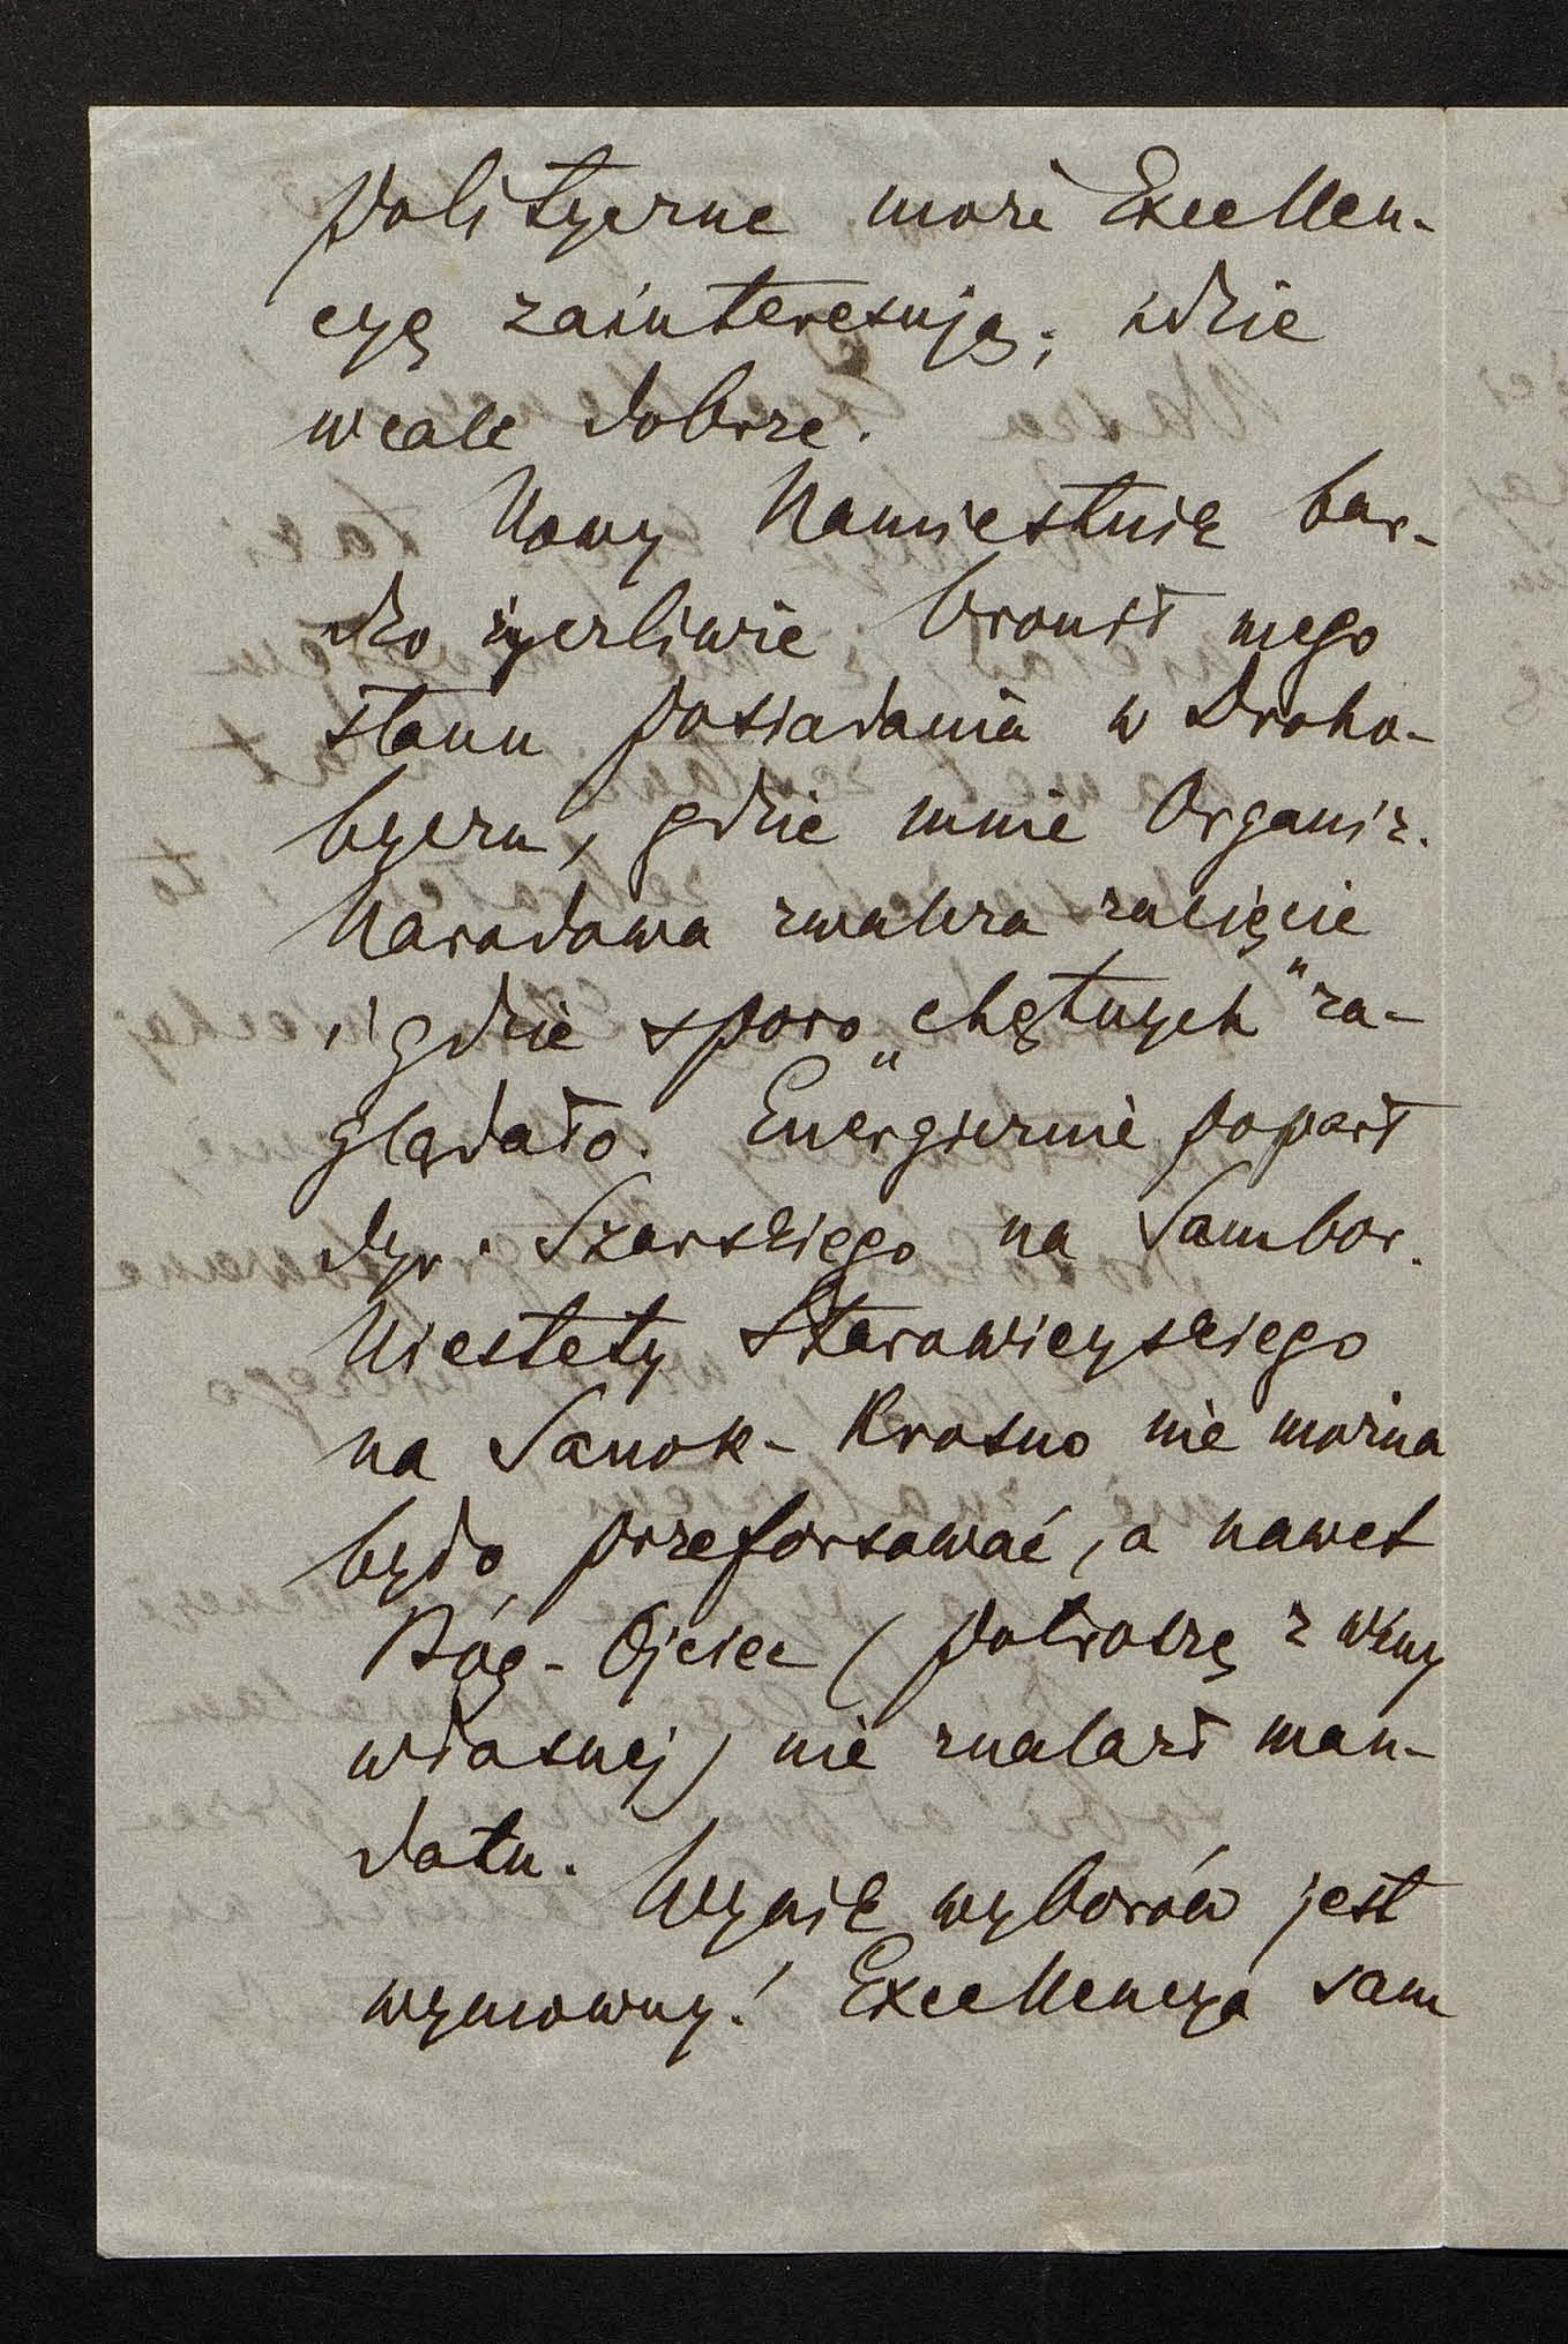 polityczne może Excellen-
cyę zainteresują; idzie
wcale dobrze.
Nowy Namiestnik bar-
dzo życzliwie bronił mego
stanu posiadania w Droho-
byczu, gdzie mnie Organiz.
Narodowa zwalcza zacięcie
i gdzie sporo „chętnych" za-
glądało. Energicznie poparł
dyr. Szarskiego na Sambor.
Niestety Starowieyskiego
na Sanok-Krosno nie można
było przeforsować, a nawet
Bóg-Ojciec (potroszę z winy
własnej) nie znalazł man-
datu.
Wynik wyborów jest
wymowny! Excellencya sam